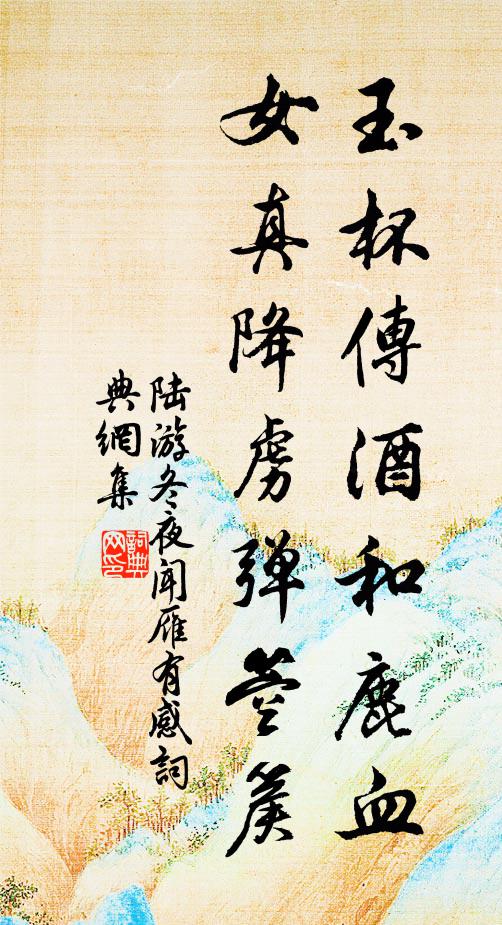 玉杯傳酒和鹿血
女真降虜彈箜篌
陆游冬夜闻雁有感詞
典網集
詞典
网印